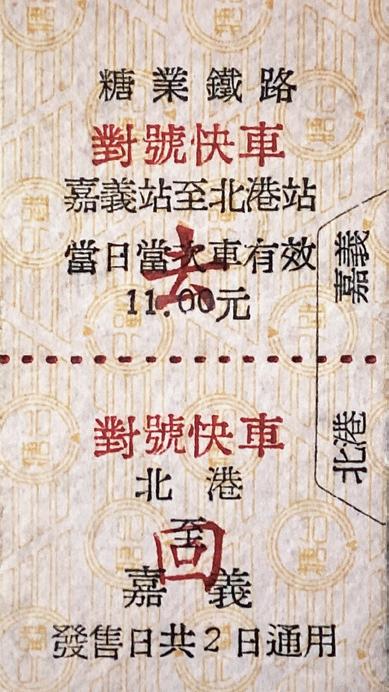 糖業鐵路
對號快車
嘉義站至北港站
當日當次車有效
去
11.00元
嘉義
北港
對號快車
北港
至
回
嘉義
發售日共2日通用